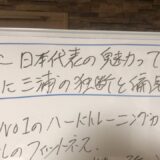 ～日本代表の魅力って
に三浦の独断と偏見
No1のハードトレーニングが
しのフィットネス